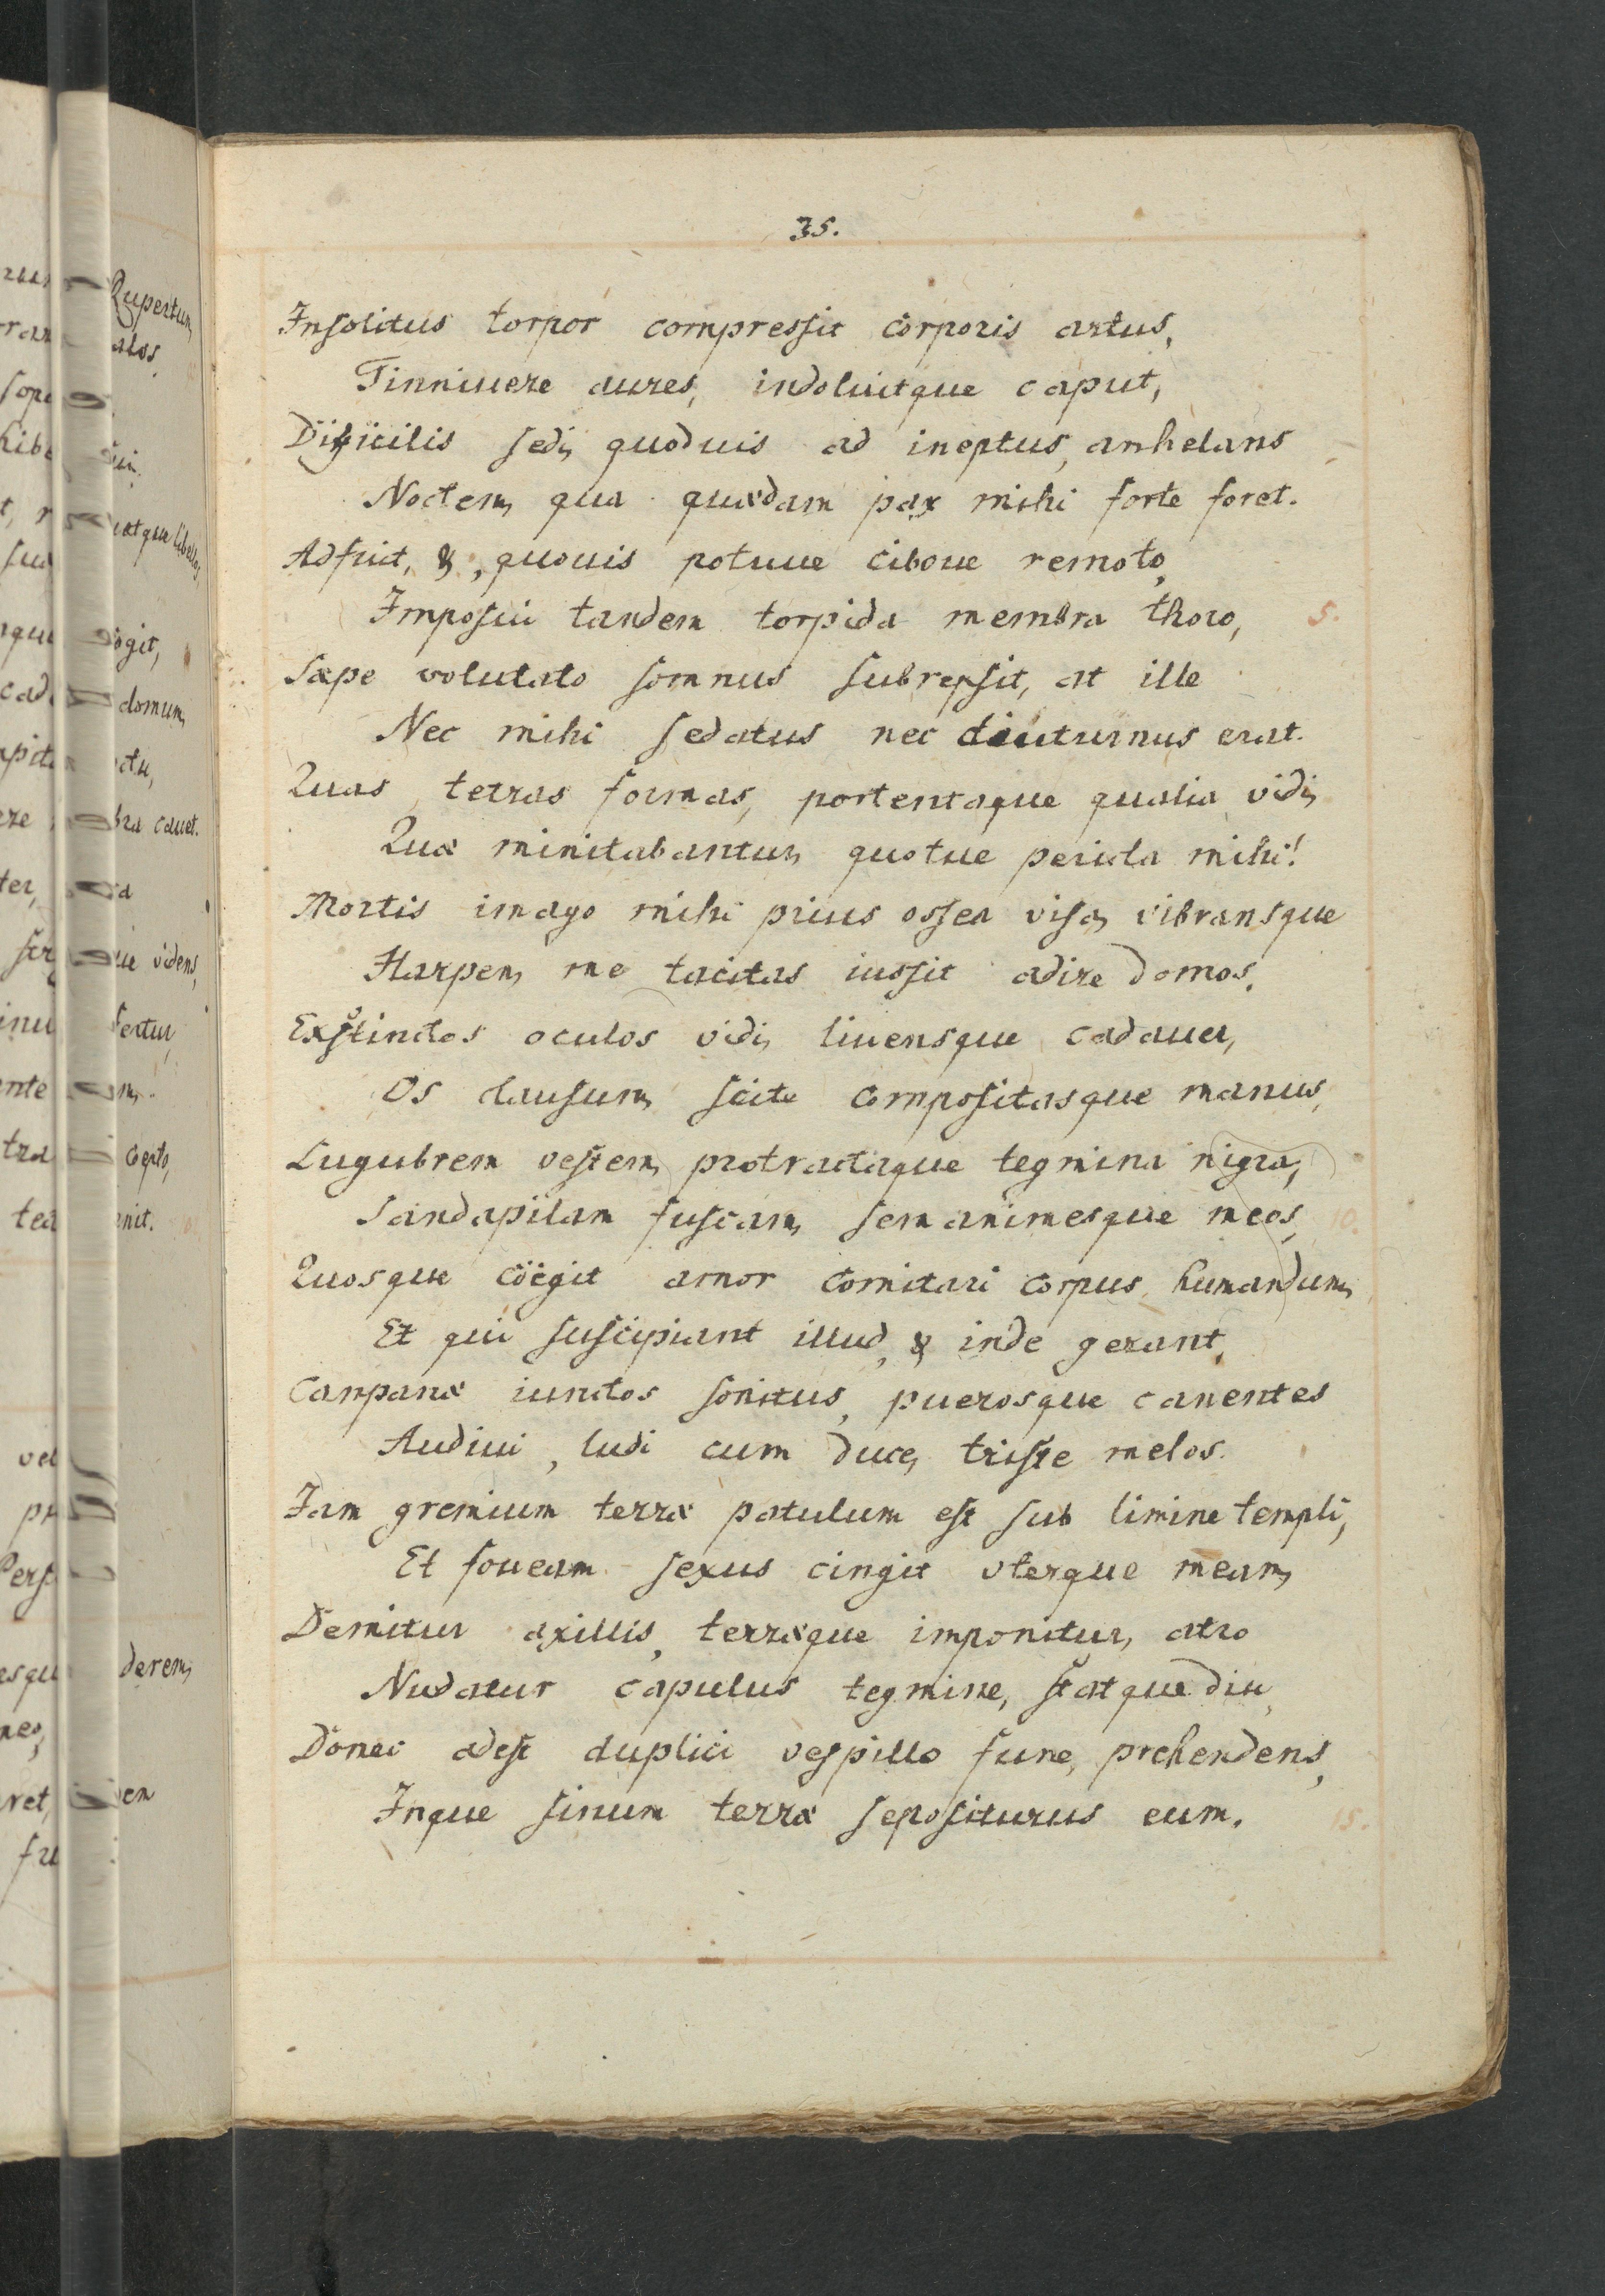 35.
Insolitus torpor compressit corporis artus,
Tinniuere aures, indoluitque caput,
Difficilis sedi, quoduis ad ineptus, anhelans
Noctem, qua quædam pax mihi forte foret.
Adfuit, &, quouis potuue ciboue remoto,
Imposui tandem torpida membra thoro, 5.
Sæpe volutato somnus subrepsit, at ille
Nec mihi sedatus nec diuturnus erat.
Quas tetras formas, portentaque qualia vidi,
Quæ minitabantur, quotue pericla mihi!
Mortis imago mihi prius ossea visa, vibransque
Harpen, me tacitas iussit adire domos.
Exstinctos oculos vidi, liuensque cadauer,
Os clausum, scite compositasque manus,
Lugubrem vestem, protractaque tegmina nigra,
Sandapilam fuscam, semanimesque meos, 10.
Quosque cöegit amor comitari corpus humandum,
Et qui suscipiant illud, & inde gerant,
Canpanæ iunctos sonitus, puerosque canentes
Audiui, ludi cum duce, triste melos.
Jam gremium terræ patulum est sub limine templi,
Et foueam sexus cingit vterque meam,
Demitur axillis, terræque imponitur, atro
Nudatur capulus tegmine, statque diu,
Donec adest duplici vespillo fune, prehendens,
Inque sinum terræ sepositurus eum. 15.
Rupertum,
atque libellos
domum,
cauet.
videns,